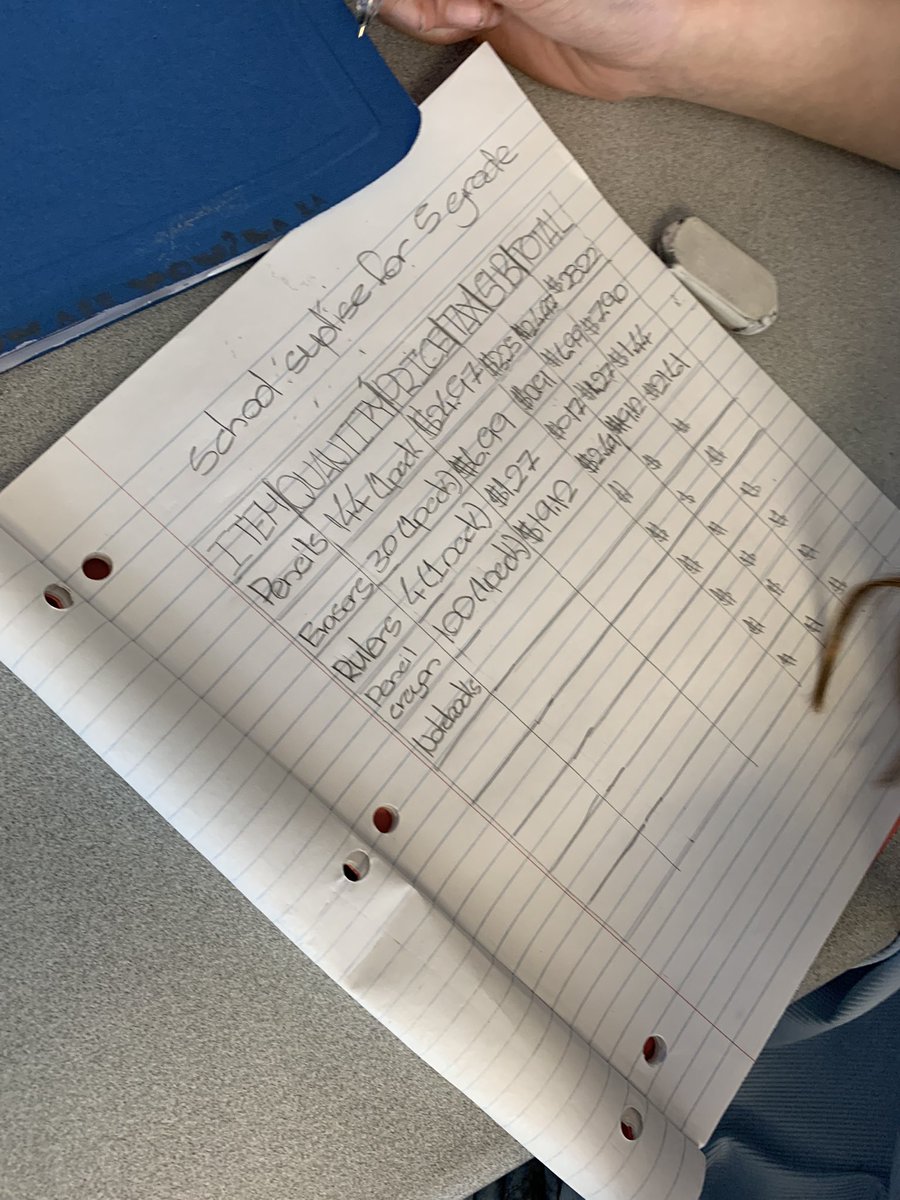 School suplise for 5 grade
ITEM QUANTITY PRICE TAX SUB TOTAL
Pencils 144 (1pack) $24.97 $3.25 $24.97 $28.22
Erasers 30 (1pack) $6.99 $0.91 $6.99 $7.90
Rulers 4 (1pack) $1.27 $0.17 $1.27 $1.44
Pencil 100 (1pack) $19.12 $2.49 $19.12 $21.61
crayon
Notebooks
$ $ $
$ $ $
$ $ $
$ $ $
$ $ $
$ $ $